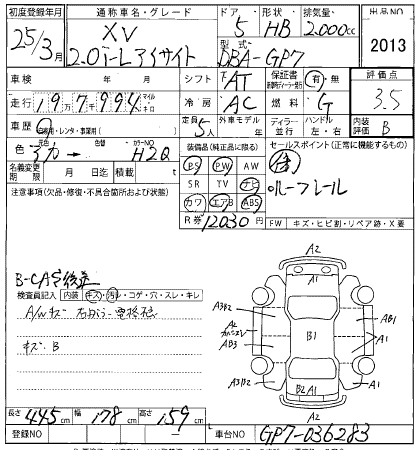 初度登録年月 通称車名・グレード ドア 形状 排気量 出品NO
25年/3月 XV 5 HB 2.000cc 2013
2.0i-Lアイサイト 型式 DBA-GP7
車検 年 月 シフト AT 保証書 有・無 評価点
走行 197994 マイル キロ 冷房 AC 燃料 G 3.5
車歴 自家用・レンタ・事業用( ) 定員 5人 外車モデル 年 ディーラー 並行 ハンドル 左・右 内装評価 B
色 元色 色替 カラーNO H2Q 装備品(純正品に限る) セールスポイント(正常に機能するもの)
名義変更期限 月 日迄 積載 t PS PW AW
注意事項(欠品・修復・不具合箇所および状態) SR TV ナビ
カワ エアB ABS ルーフレール
R券 12030円 FW キズ・ヒビ割・リペア跡・X要
A2
B-CAS後送
検査員記入 内装 キズ・汚レ・コゲ・穴・スレ・キレ
A/Wキズ
キズB
A3B2 A2 AB3 A3B2 B1 AB1 A1 A1
B2 A1
A2
長さ 445cm 幅 178cm 高さ 159cm
登録NO 車台NO GP7-036283